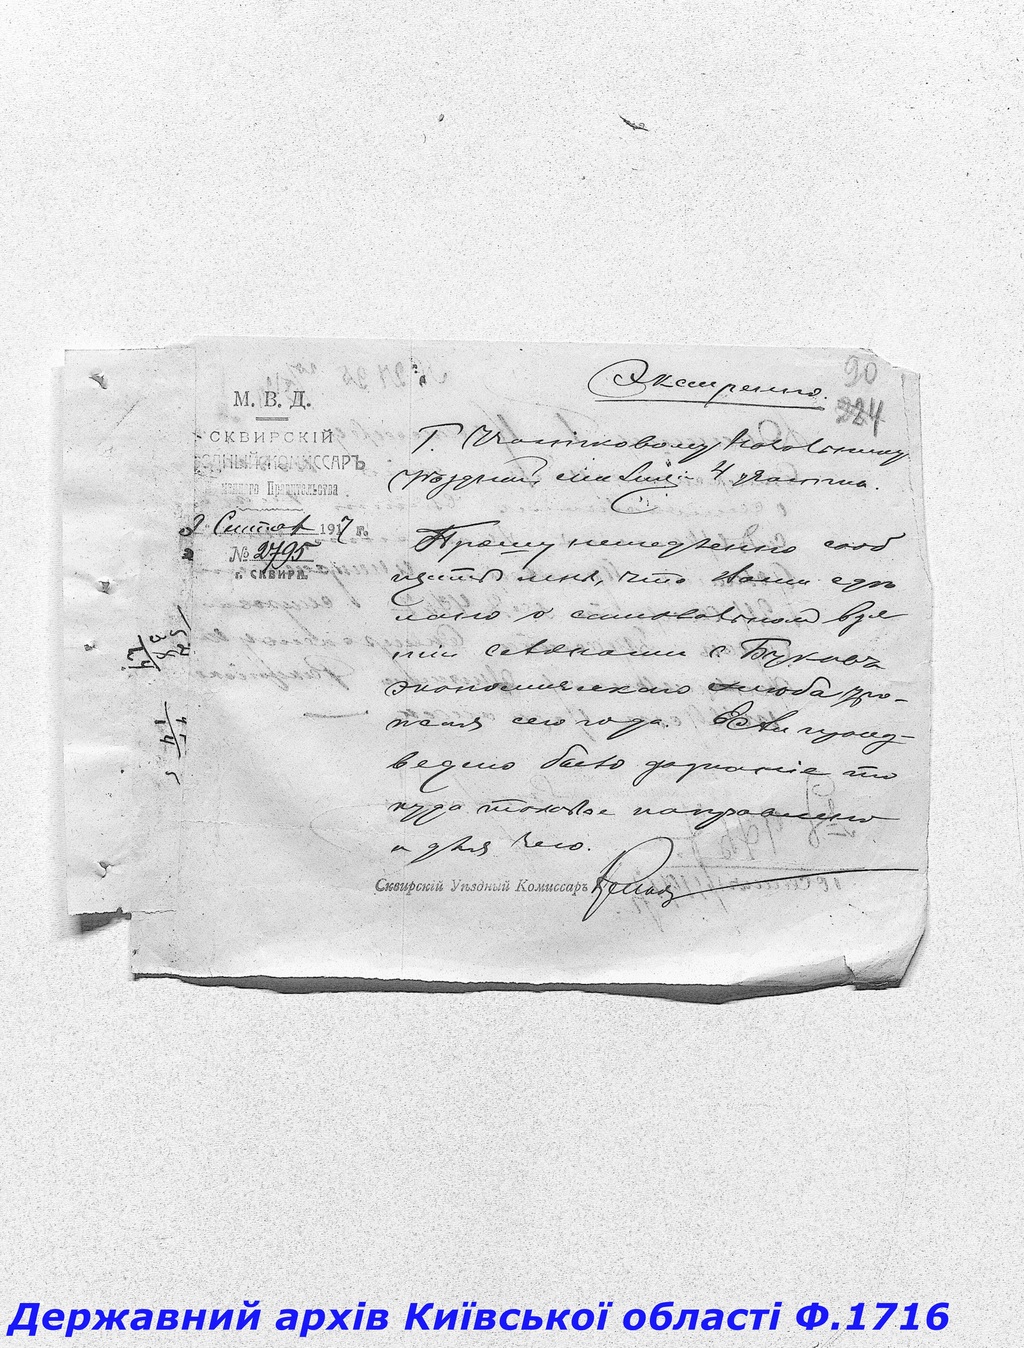 Экстренно.
90
324
М. В. Д.
СКВИРСКІЙ
КОМИССАРЪ
Правительства
2 Сентяб 1917 г.
№ 2795
г. СКВИРА.
Г. Участковому Начальнику
уѣздной милиціи 4 участка.
Прошу немедленно сооб
щить мнѣ, что Вами сдѣ
лано о самовольном взя
тіи селянами с. Буковъ
экономическаго хлѣба уро-
жая сего года. Если произ-
ведено было дознаніе то
куда таковое направлено
и для чего.
Сквирскій Уѣздный Комиссаръ
Державний архів Київської області Ф.1716